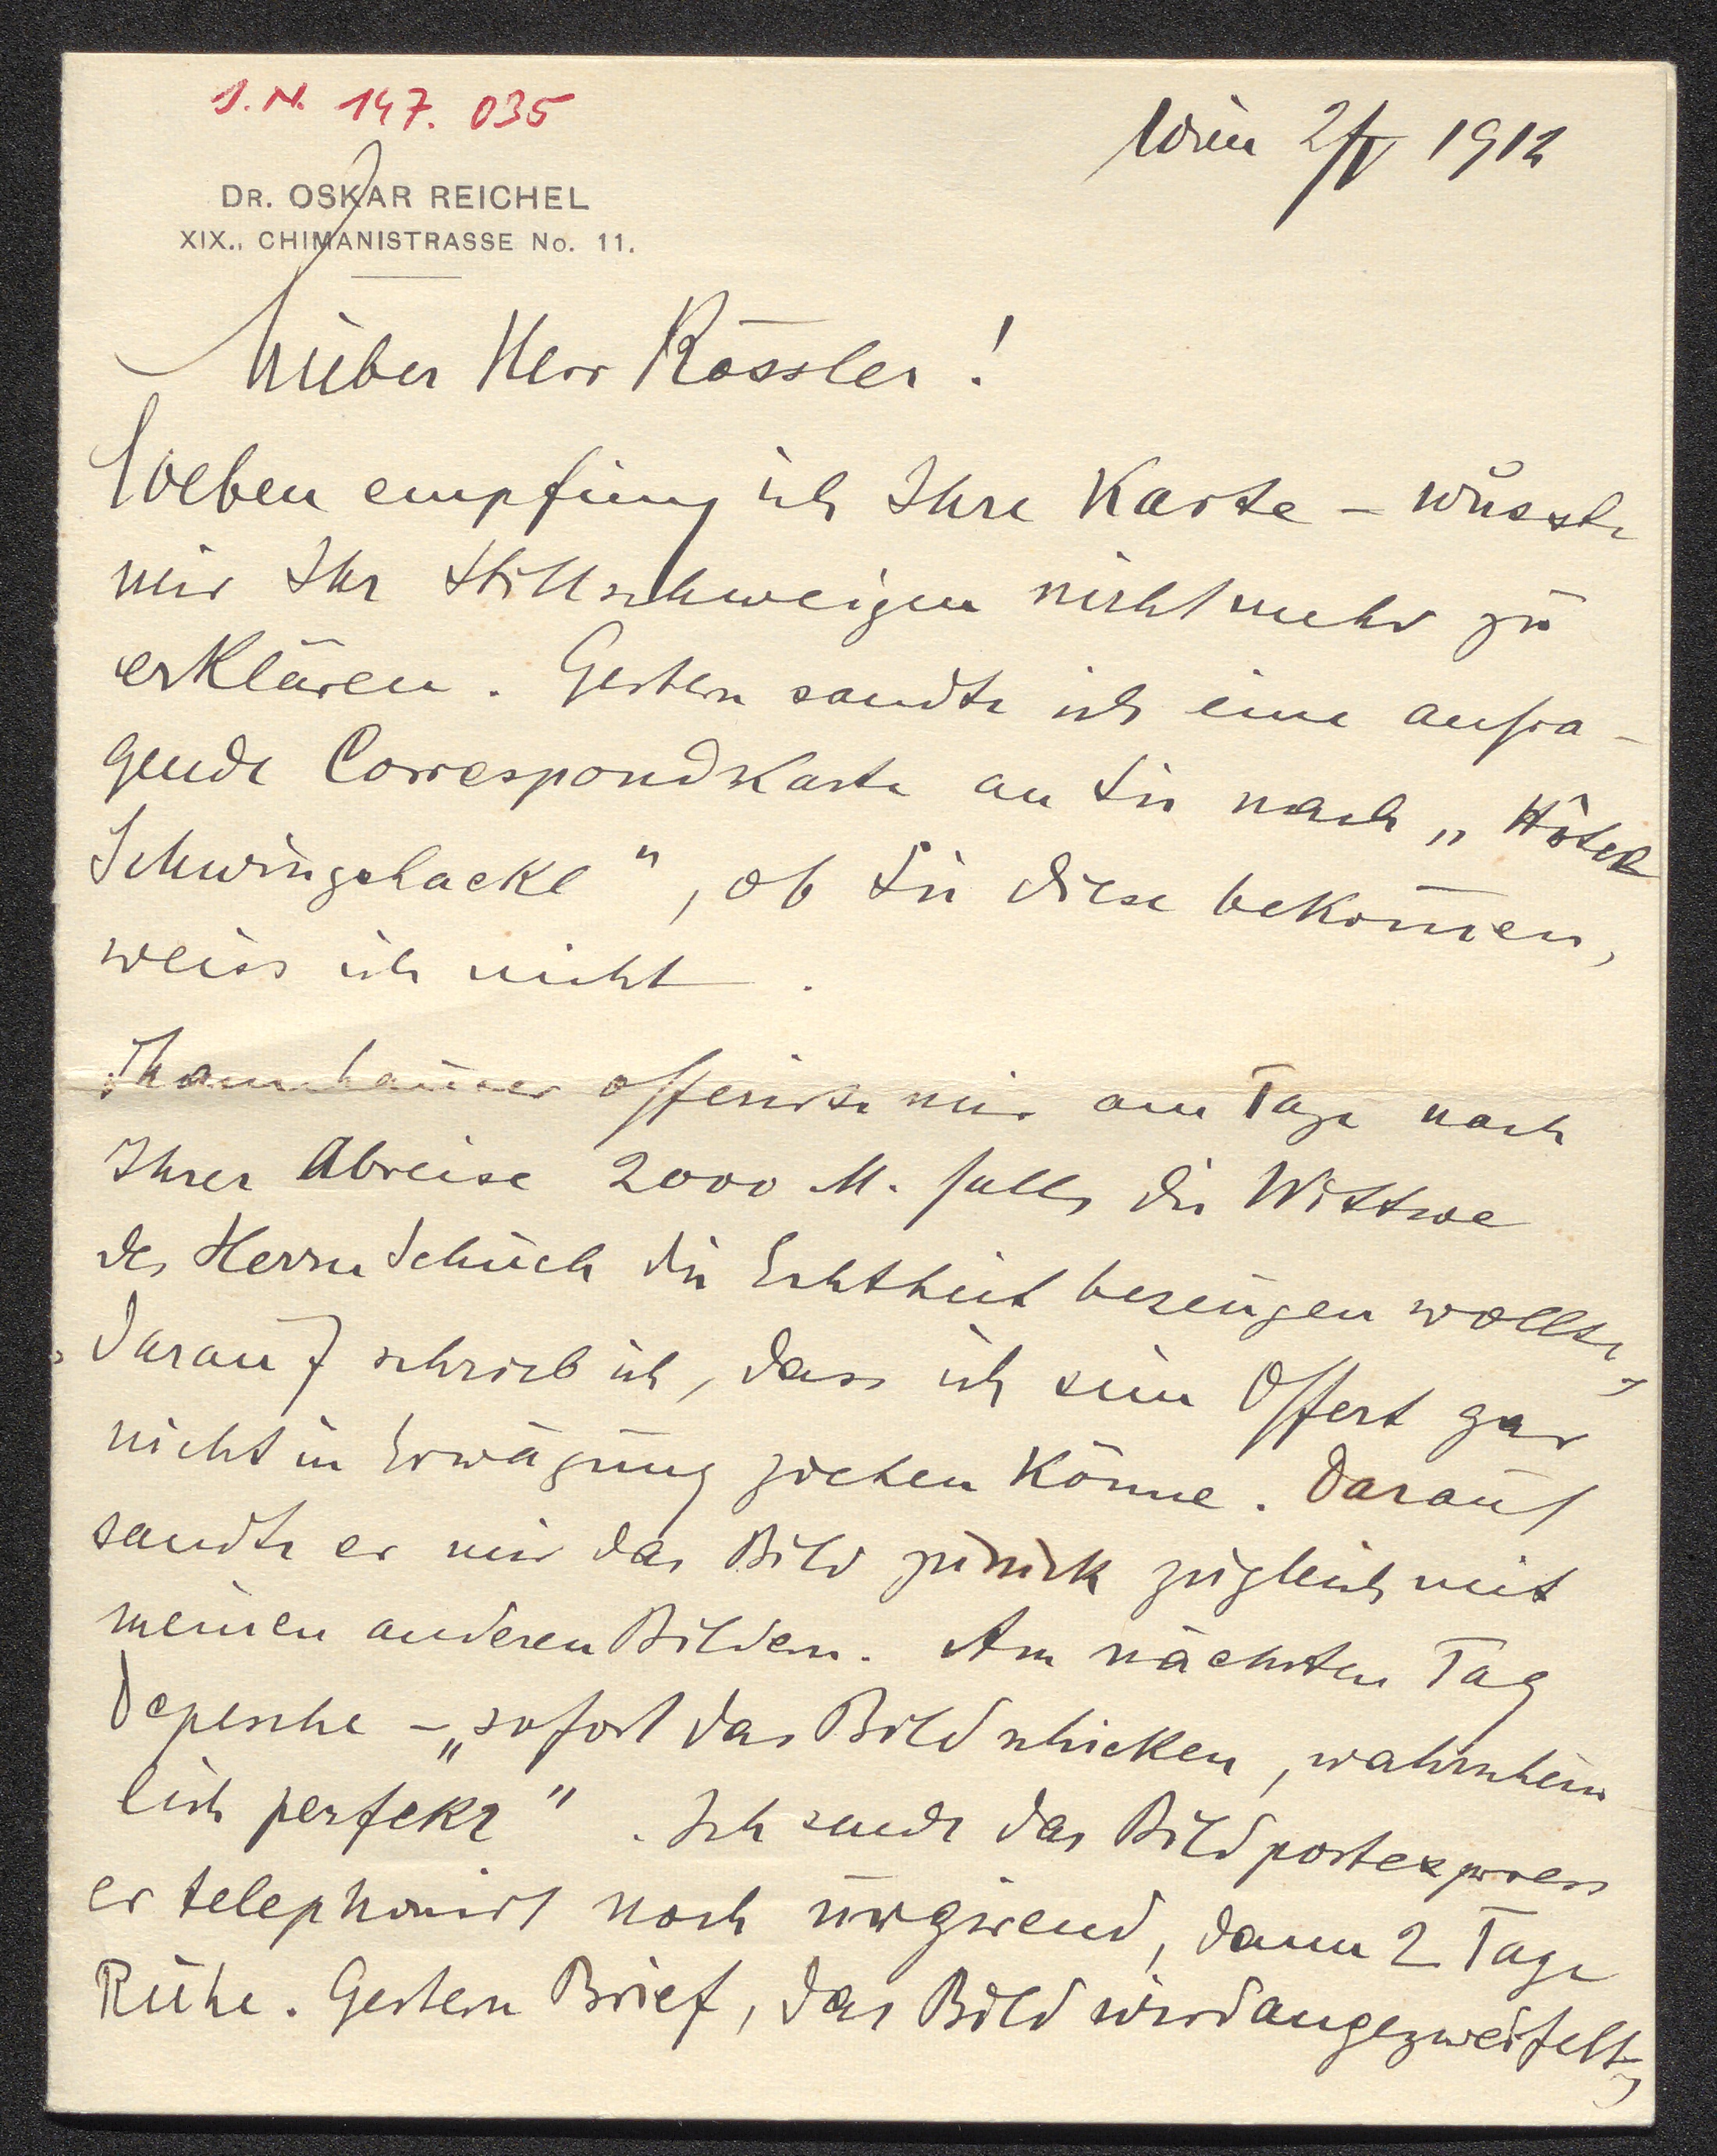 J.N. 147.035
Wien 2/V 1912
DR. OSKAR REICHEL
XIX., CHIMANISTRASSE No. 11.
Lieber Herr Rössler!
Soeben empfing ich Ihre Karte – wusste
mir Ihr Stillschweigen nicht mehr zu
erklären. Gestern sandte ich eine anfra-
gende Correspondkarte an Sie nach „Hôtel
Schwingshackl", ob Sie diese bekom̄en,
weiss ich nicht.
Thannhauser offerirte mir am Tage nach
Ihrer Abreise 2000 M. falls die Wittwe
des Herrn Schuch die Echtheit bezeugen wollte,
Darauf schrieb ich, dass ich sein Offert gar
nicht in Erwägung ziehen könne. Darauf
sandte er mir das Bild zurück zugleich mit
meinen anderen Bildern. Am nächsten Tag
Depesche – „sofort das Bild schicken, wahrschein
lich perfekt". Ich sende das Bild postexpress
er telephonirt noch urgirend, dann 2 Tage
Ruhe. Gestern Brief, das Bild wird angezweifelt,